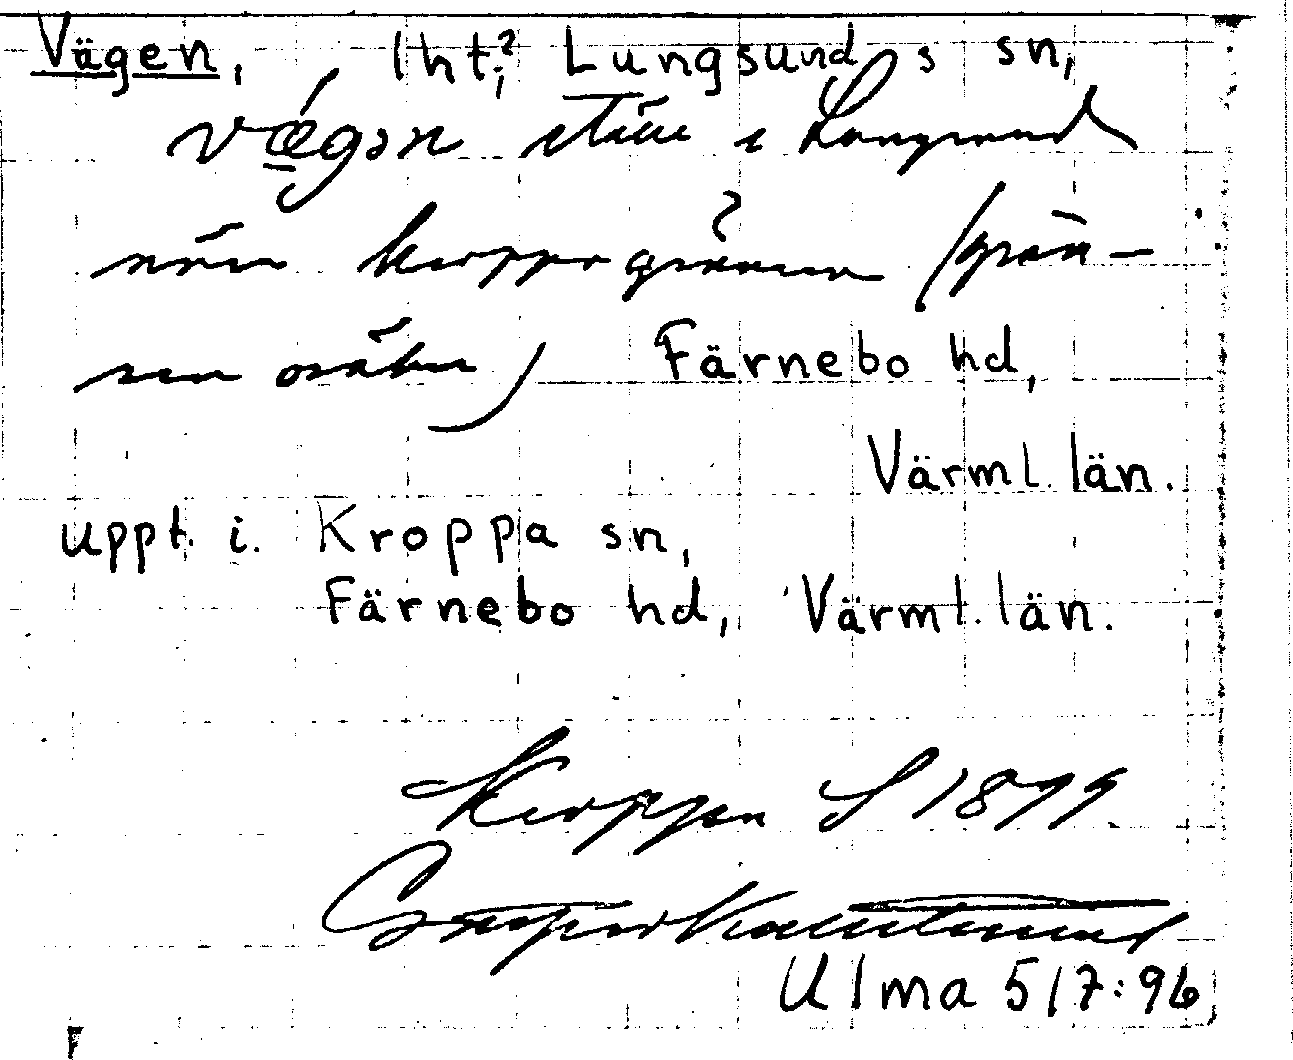 Vägen, lht.? Lungsunds sn,
vægən ställe i Lungsund
nära kroppagränsen (grän-
sen osäker) Färnebo hd,
Värml. län.
uppt. i. Kroppa sn,
Färnebo hd, Värml. län.
Kroppen S 1899.
Ulma 517:96